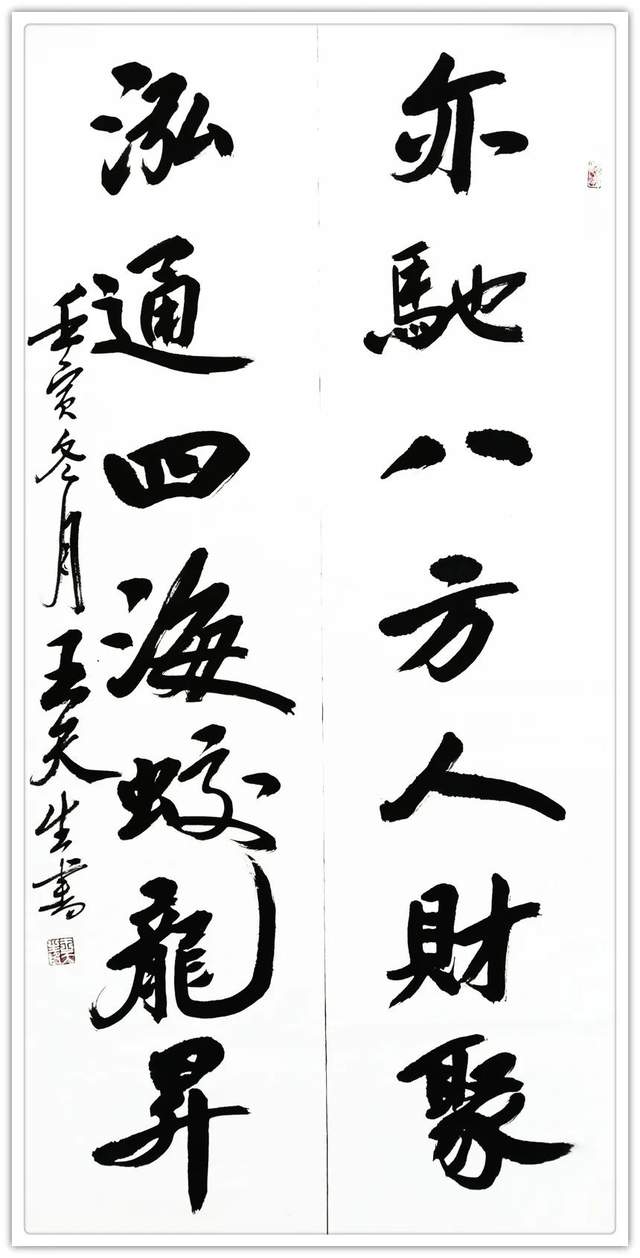 亦馳八方人財聚
泓通四海蛟龍昇
壬寅冬月王天生書